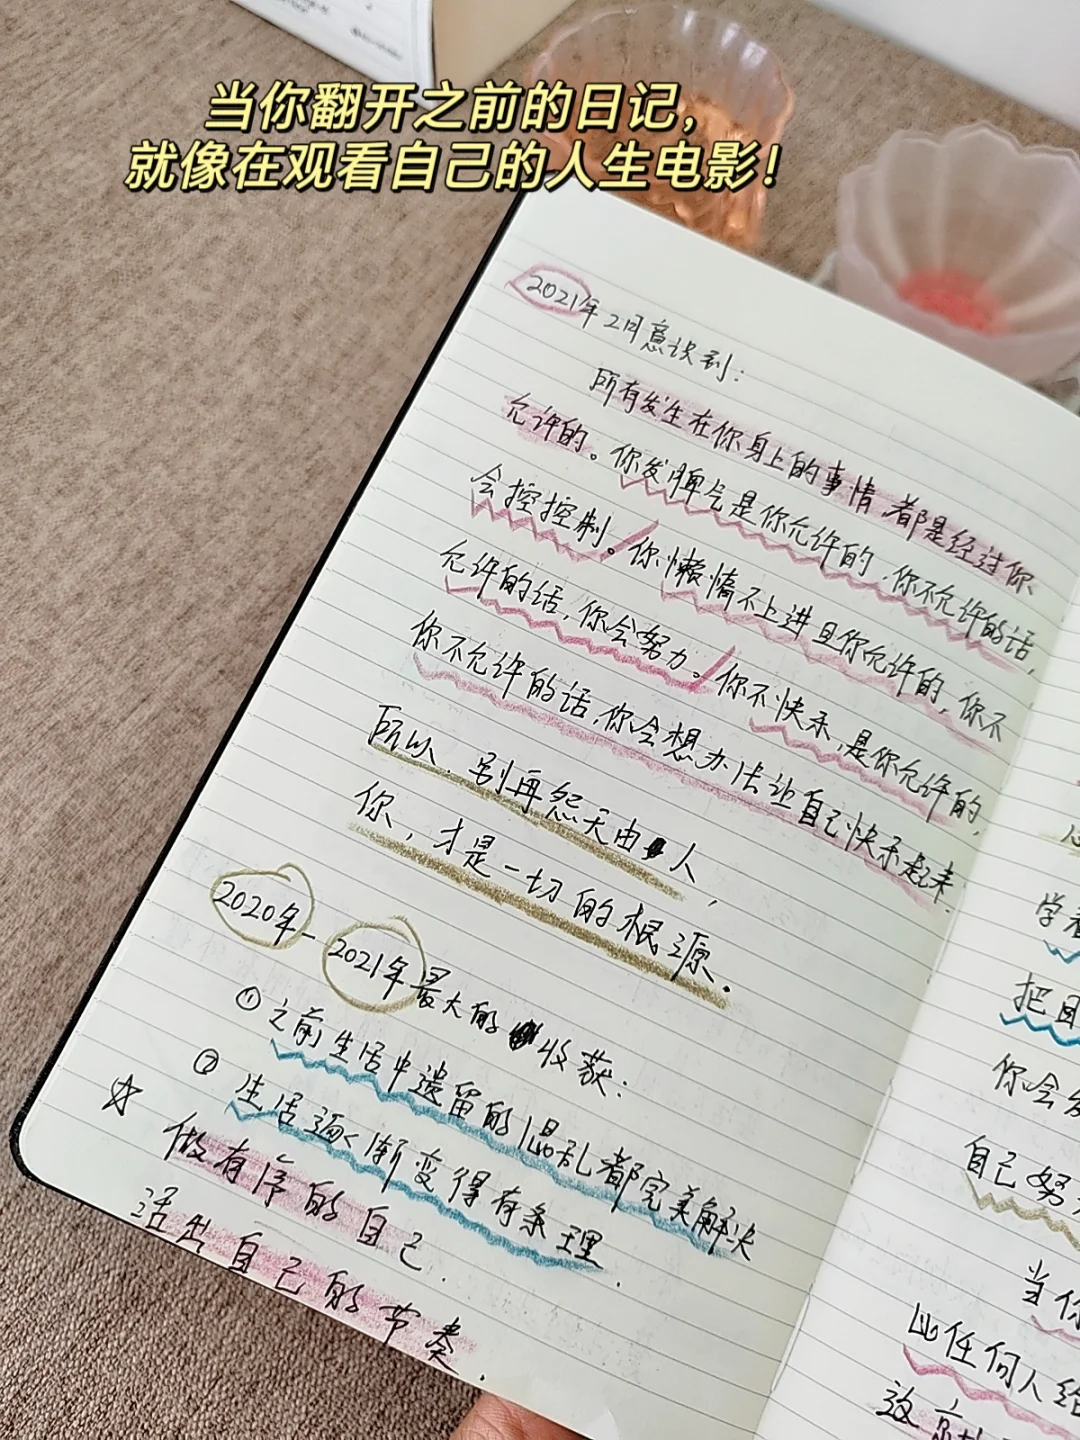 当你翻开之前的日记，
就像在观看自己的人生电影！
2021年2月意识到：
所有发生在你身上的事情，都是经过你
允许的。你发脾气是你允许的，你不允许的话，
会控控制。你懒惰不上进且你允许的，你不
允许的话，你会努力。你不快乐，是你允许的，
你不允许的话，你会想办法让自己快乐起来.
所以，别再怨天由人，
你，才是一切的根源.
2020年-2021年最大的收获：
①之前生活中遗留的混乱都完美解决
②生活逐渐变得有条理.
☆做有序的自己.
活出自己的节奏.
学
把
你会
自己努
当你
任何人给
这就